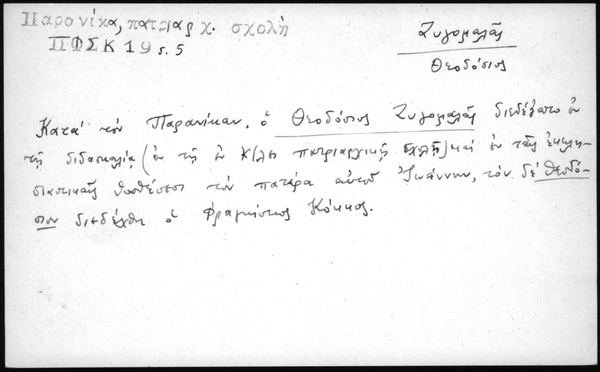 Παρονίκα, πατριαρχ. σχολὴ
ΠΦΣΚ 19 s. 5
Ζυγομαλᾶς
Θεοδόσιος
Κατὰ τὸν Παρανίκαν, ὁ Θεοδόσιος Ζυγομαλᾶς διεδέξατο ἐν
τῇ διδασκαλίᾳ (ἐν τῇ ἐν Κ/λει πατριαρχικῇ σχολῇ) καὶ ἐν ταῖς ἐκκλη-
σιαστικαῖς ὑποθέσεσι τὸν πατέρα αὐτοῦ Ἰωάννην, τὸν δὲ Θεοδό-
σιον διεδέχθη ὁ Φραγκίσκος Κόκκος.